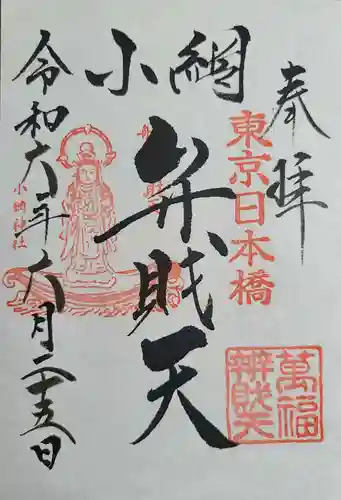 奉拝
東京日本橋
萬福
辨財天
小網
弁財天
舩
小網神社
令和六年六月二十五日